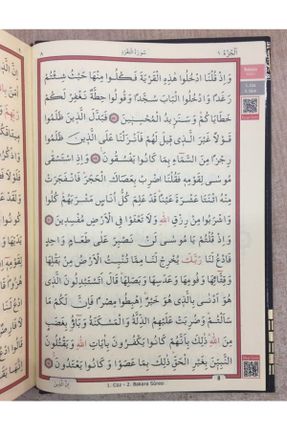 اَلْجُزْءُ ١
سُورَةُ الْبَقَرَةِ
٨
وَاِذْ قُلْنَا ادْخُلُوا هٰذِهِ الْقَرْيَةَ فَكُلُوا مِنْهَا حَيْثُ شِئْتُمْ
رَغَدًا وَادْخُلُوا الْبَابَ سُجَّدًا وَقُولُوا حِطَّةٌ نَغْفِرْ لَكُمْ
خَطَايَاكُمْ وَسَنَزِيدُ الْمُحْسِنِينَ فَبَدَّلَ الَّذِينَ ظَلَمُوا
قَوْلًا غَيْرَ الَّذِي قِيلَ لَهُمْ فَاَنْزَلْنَا عَلَى الَّذِينَ ظَلَمُوا
رِجْزًا مِنَ السَّمَاءِ بِمَا كَانُوا يَفْسُقُونَ وَاِذِ اسْتَسْقٰى
مُوسٰى لِقَوْمِهِ فَقُلْنَا اضْرِبْ بِعَصَاكَ الْحَجَرَ فَانْفَجَرَتْ
مِنْهُ اثْنَتَا عَشْرَةَ عَيْنًا قَدْ عَلِمَ كُلُّ اُنَاسٍ مَشْرَبَهُمْ كُلُوا
وَاشْرَبُوا مِنْ رِزْقِ اللّٰهِ وَلَا تَعْثَوْا فِي الْاَرْضِ مُفْسِدِينَ
وَاِذْ قُلْتُمْ يَا مُوسٰى لَنْ نَصْبِرَ عَلٰى طَعَامٍ وَاحِدٍ
فَادْعُ لَنَا رَبَّكَ يُخْرِجْ لَنَا مِمَّا تُنْبِتُ الْاَرْضُ مِنْ بَقْلِهَا
وَقِثَّائِهَا وَفُومِهَا وَعَدَسِهَا وَبَصَلِهَا قَالَ اَتَسْتَبْدِلُونَ الَّذِي
هُوَ اَدْنٰى بِالَّذِي هُوَ خَيْرٌ اِهْبِطُوا مِصْرًا فَاِنَّ لَكُمْ مَا
سَاَلْتُمْ وَضُرِبَتْ عَلَيْهِمُ الذِّلَّةُ وَالْمَسْكَنَةُ وَبَاؤُ بِغَضَبٍ
مِنَ اللّٰهِ ذٰلِكَ بِاَنَّهُمْ كَانُوا يَكْفُرُونَ بِاٰيَاتِ اللّٰهِ وَيَقْتُلُونَ
النَّبِيّٖنَ بِغَيْرِ الْحَقِّ ذٰلِكَ بِمَا عَصَوْا وَكَانُوا يَعْتَدُونَ
8
1. Cüz - 2. Bakara Sûresi